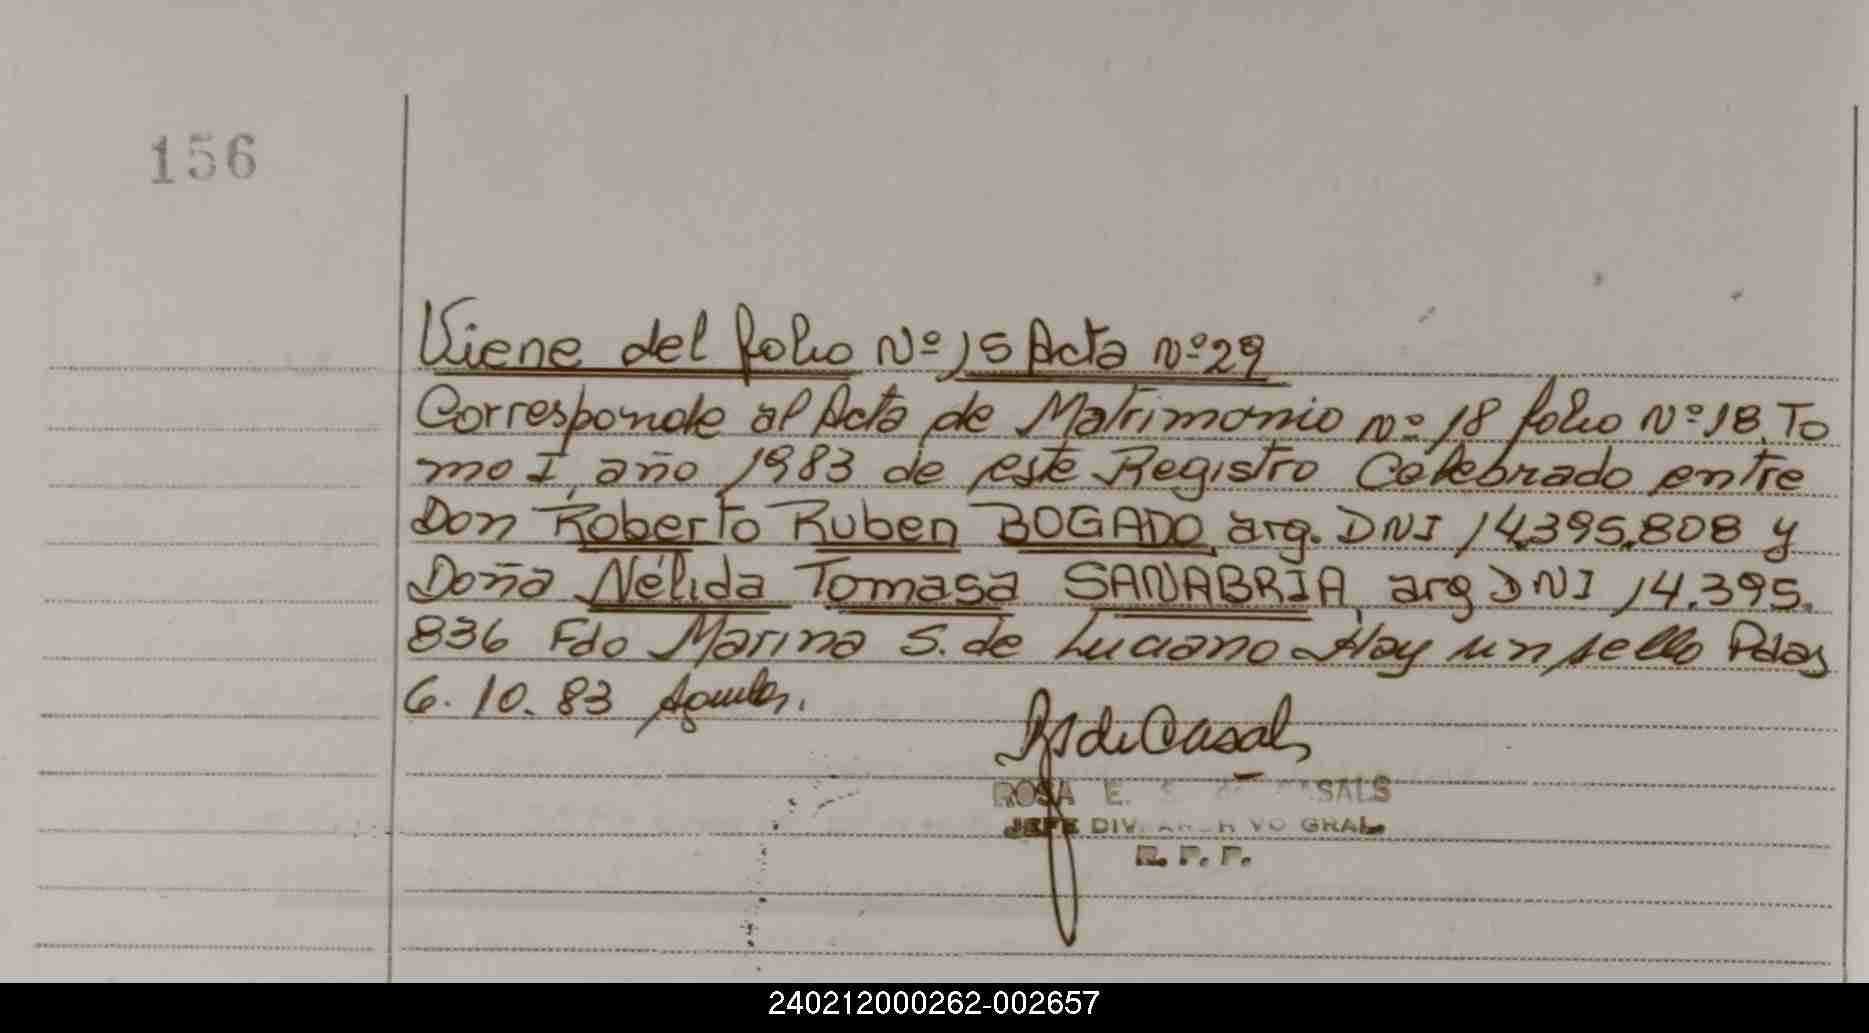 156
Viene del folio Nº 15 Acta Nº 29
Corresponde al Acta de Matrimonio nº 18 folio Nº 18, To
mo I, año 1983 de este Registro Celebrado entre
Don Roberto Ruben BOGADO, arg. DNI 14.395.808 y
Doña Nélida Tomasa SANABRIA, arg DNI 14.395.
836 Fdo Marina S. de Luciano Hay un sello Pdas
6.10.83
RS de Casals
ROSA E. S. de CASALS
JEFE DIV. ARCHIVO GRAL.
R. P. P.
240212000262-002657